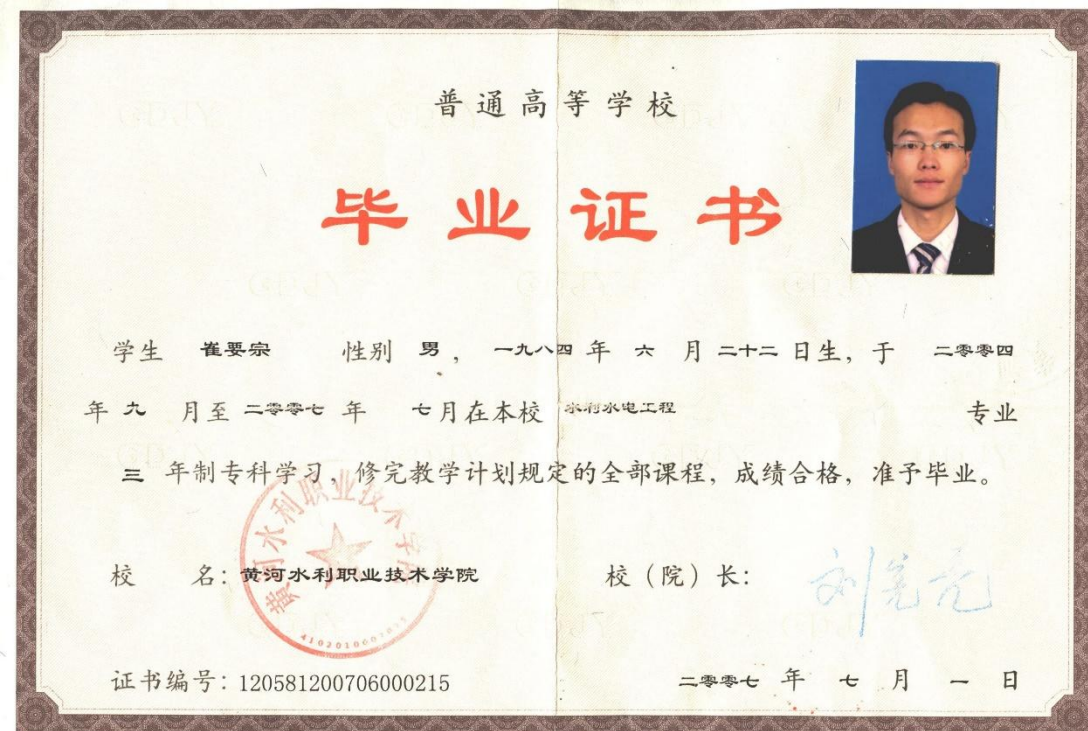 普通高等学校
毕业证书
学生 崔要宗 性别 男，一九八四 年 六 月 二十二 日生，于 二零零四
年 九 月至 二零零七 年 七 月在本校 水利水电工程 专业
三 年制专科学习，修完教学计划规定的全部课程，成绩合格，准予毕业。
黄河水利职业技术学院
校 名：黄河水利职业技术学院 校（院）长：
证书编号：120581200706000215 二零零七 年 七 月 一 日